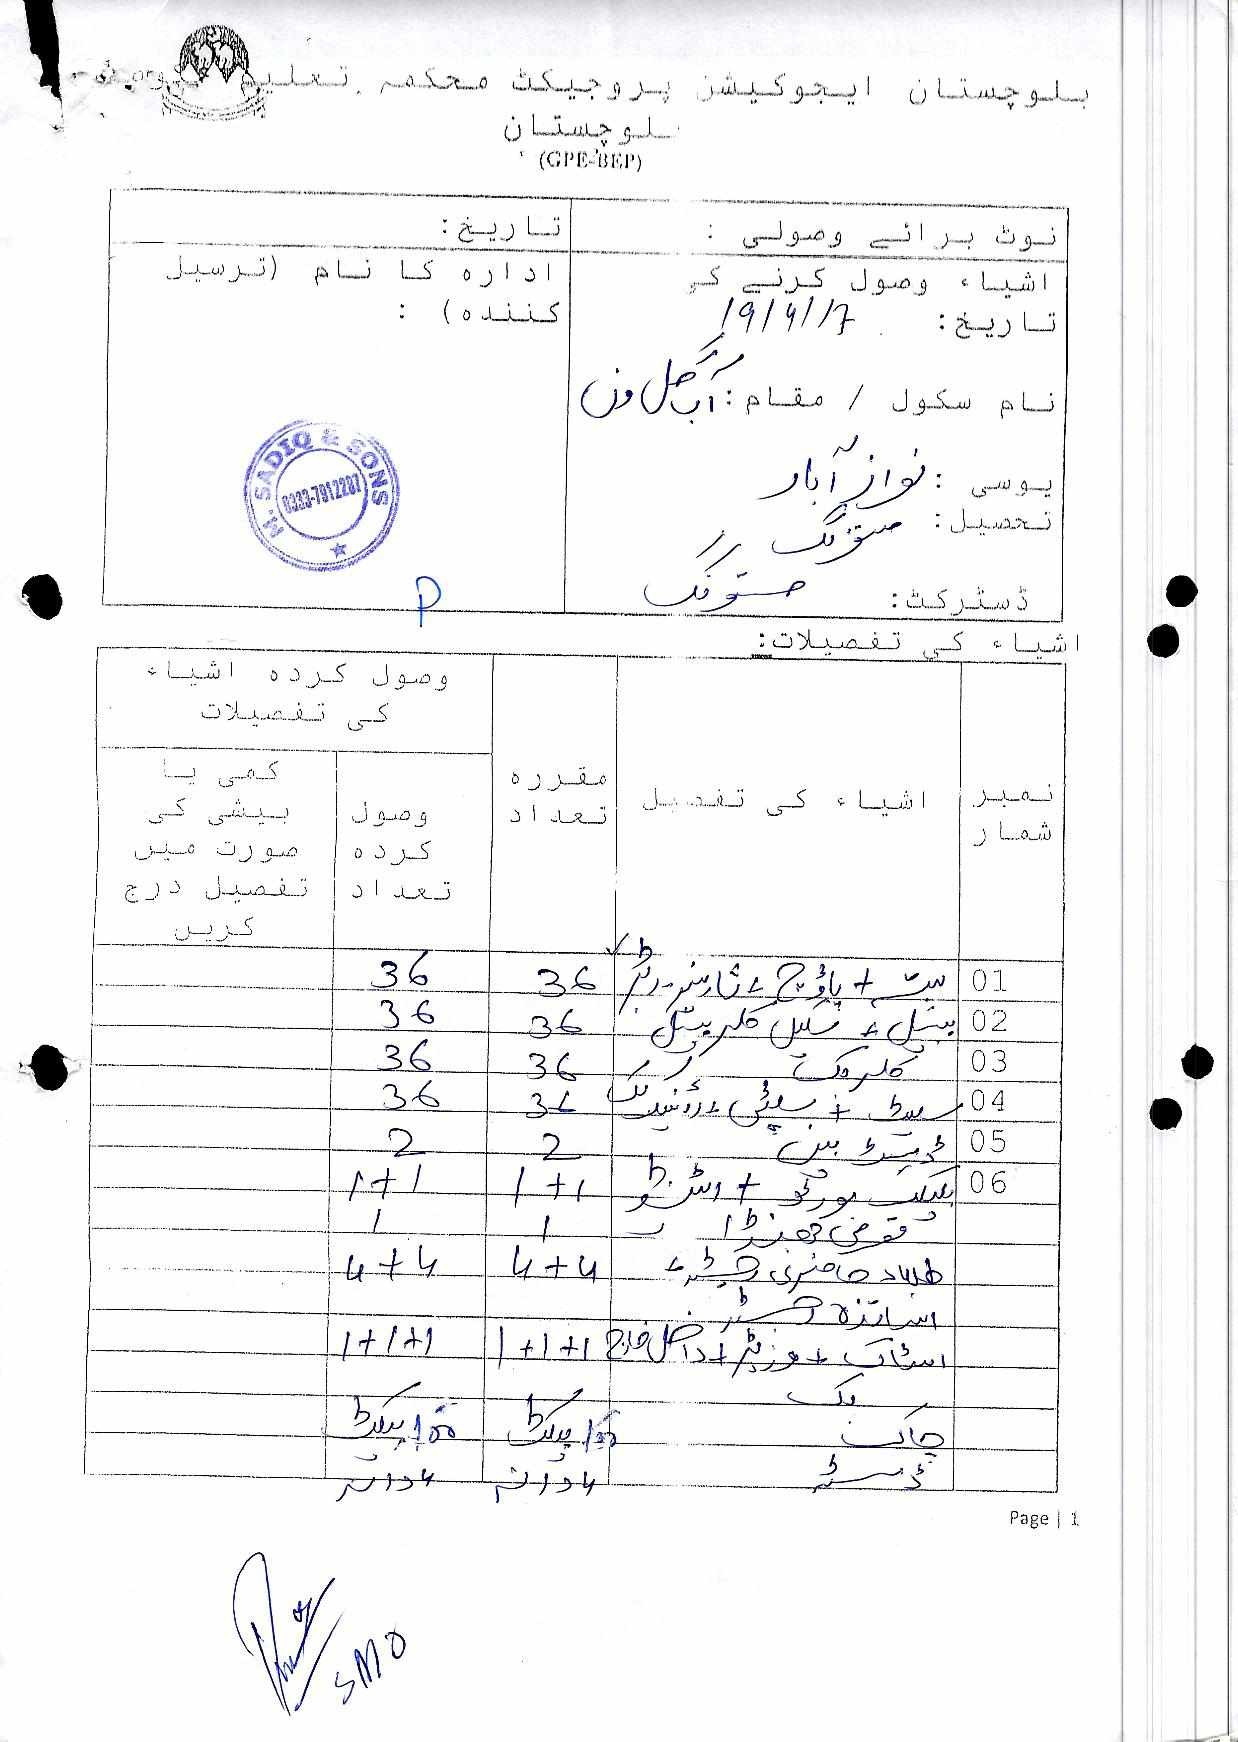 بلوچستان ایجوکیشن پروجیکٹ محکمہ تعلیم
بلوچستان
(GPE-BEP)
نوٹ برائے وصولی :
تاریخ:
اشیاء وصول کرنے کی
تاریخ: 19/9/17
ادارہ کا نام (ترسیل
کنندہ) :
نام سکول / مقام:
یوسی: نواز آباد
تحصیل: مستونگ
ڈسٹرکٹ: مستونگ
M. SADIQ & SONS
0333-7912287
P
اشیاء کی تفصیلات:
نمبر شمار
اشیاء کی تفصیل
مقررہ تعداد
وصول کردہ اشیاء
کی تفصیلات
وصول کردہ تعداد
کمی یا بیشی کی صورت میں تفصیل درج کریں
01 + پاؤچ + 36 36
02 پنسل + کلر پنسل 36 36
03 کلر بک 36 36
04 + + ڈرائنگ بک 36 36
05 ڈسٹ بن 2 2
06 بلیک بورڈ + 1+1 1+1
قومی جھنڈا 1 1
طلباء حاضری رجسٹر + 4+4 4+4
اساتذہ رجسٹر
اسٹاک + وزیٹر + داخل خارج 1+1+1 1+1+1
بک
چاک 100 پیکٹ 100 پیکٹ
ڈسٹر 4 دانہ 4 دانہ
Page | 1
SMO